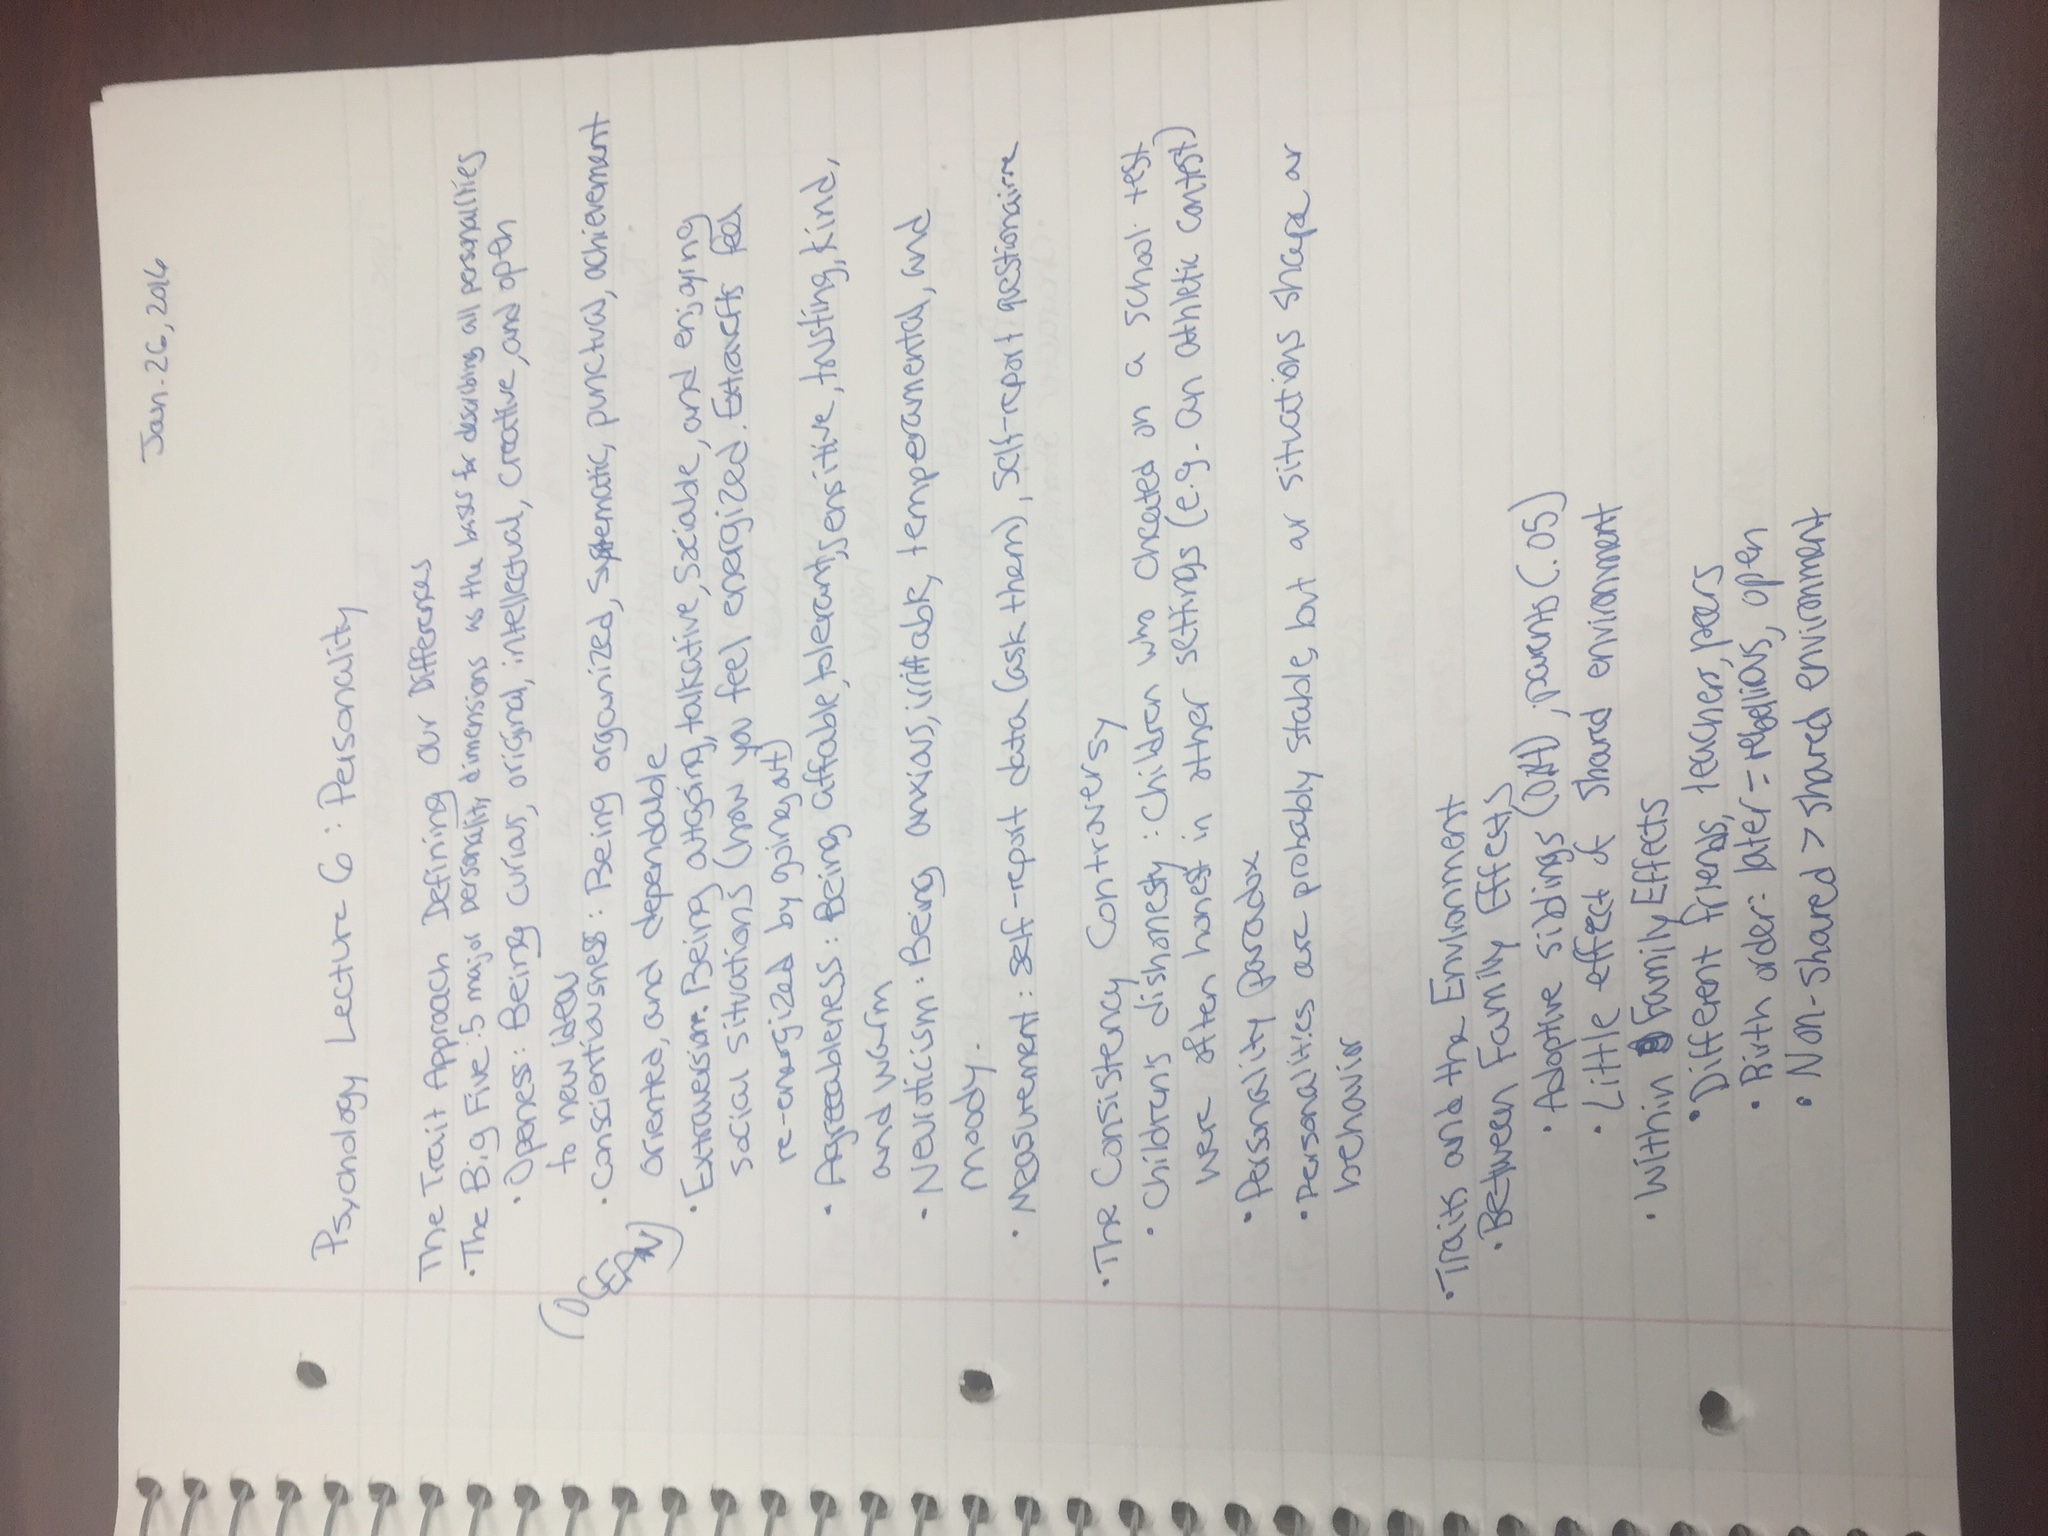 Jan. 26, 2016
Psychology Lecture 6 : Personality
The Trait Approach Defining our Differences
• The Big Five : 5 major personality dimensions as the bases for describing all personalities
• Openess : Being curious, original, intellectual, creative, and open
to new ideas
• Conscientiousness : Being organized, systematic, punctual, achievement
oriented, and dependable
(OCEAN)
• Extraversion: Being outgoing, talkative, sociable, and enjoying
social situations (how you feel energized. Extraverts feel
re-energized by going out)
• Agreeableness : Being affable, tolerant, sensitive, trusting, kind,
and warm
• Neuroticism : Being anxious, irritable, temperamental, and
moody.
• Measurement : self-report data (ask them), self-report questionairre
• The Consistency Controversy
• Children's dishonesty : Children who cheated on a school test
were often honest in other settings (e.g. an athletic contest)
• Personality paradox
• Personalities are probably stable, but our situations shape our
behavior
• Traits and the Environment
• Between Family Effects
• Adoptive siblings (.04), parents (.05)
• Little effect of shared environment
• Within Family Effects
• Different friends, teachers, peers
• Birth order: later = rebellious, open
• Non-shared > shared environment